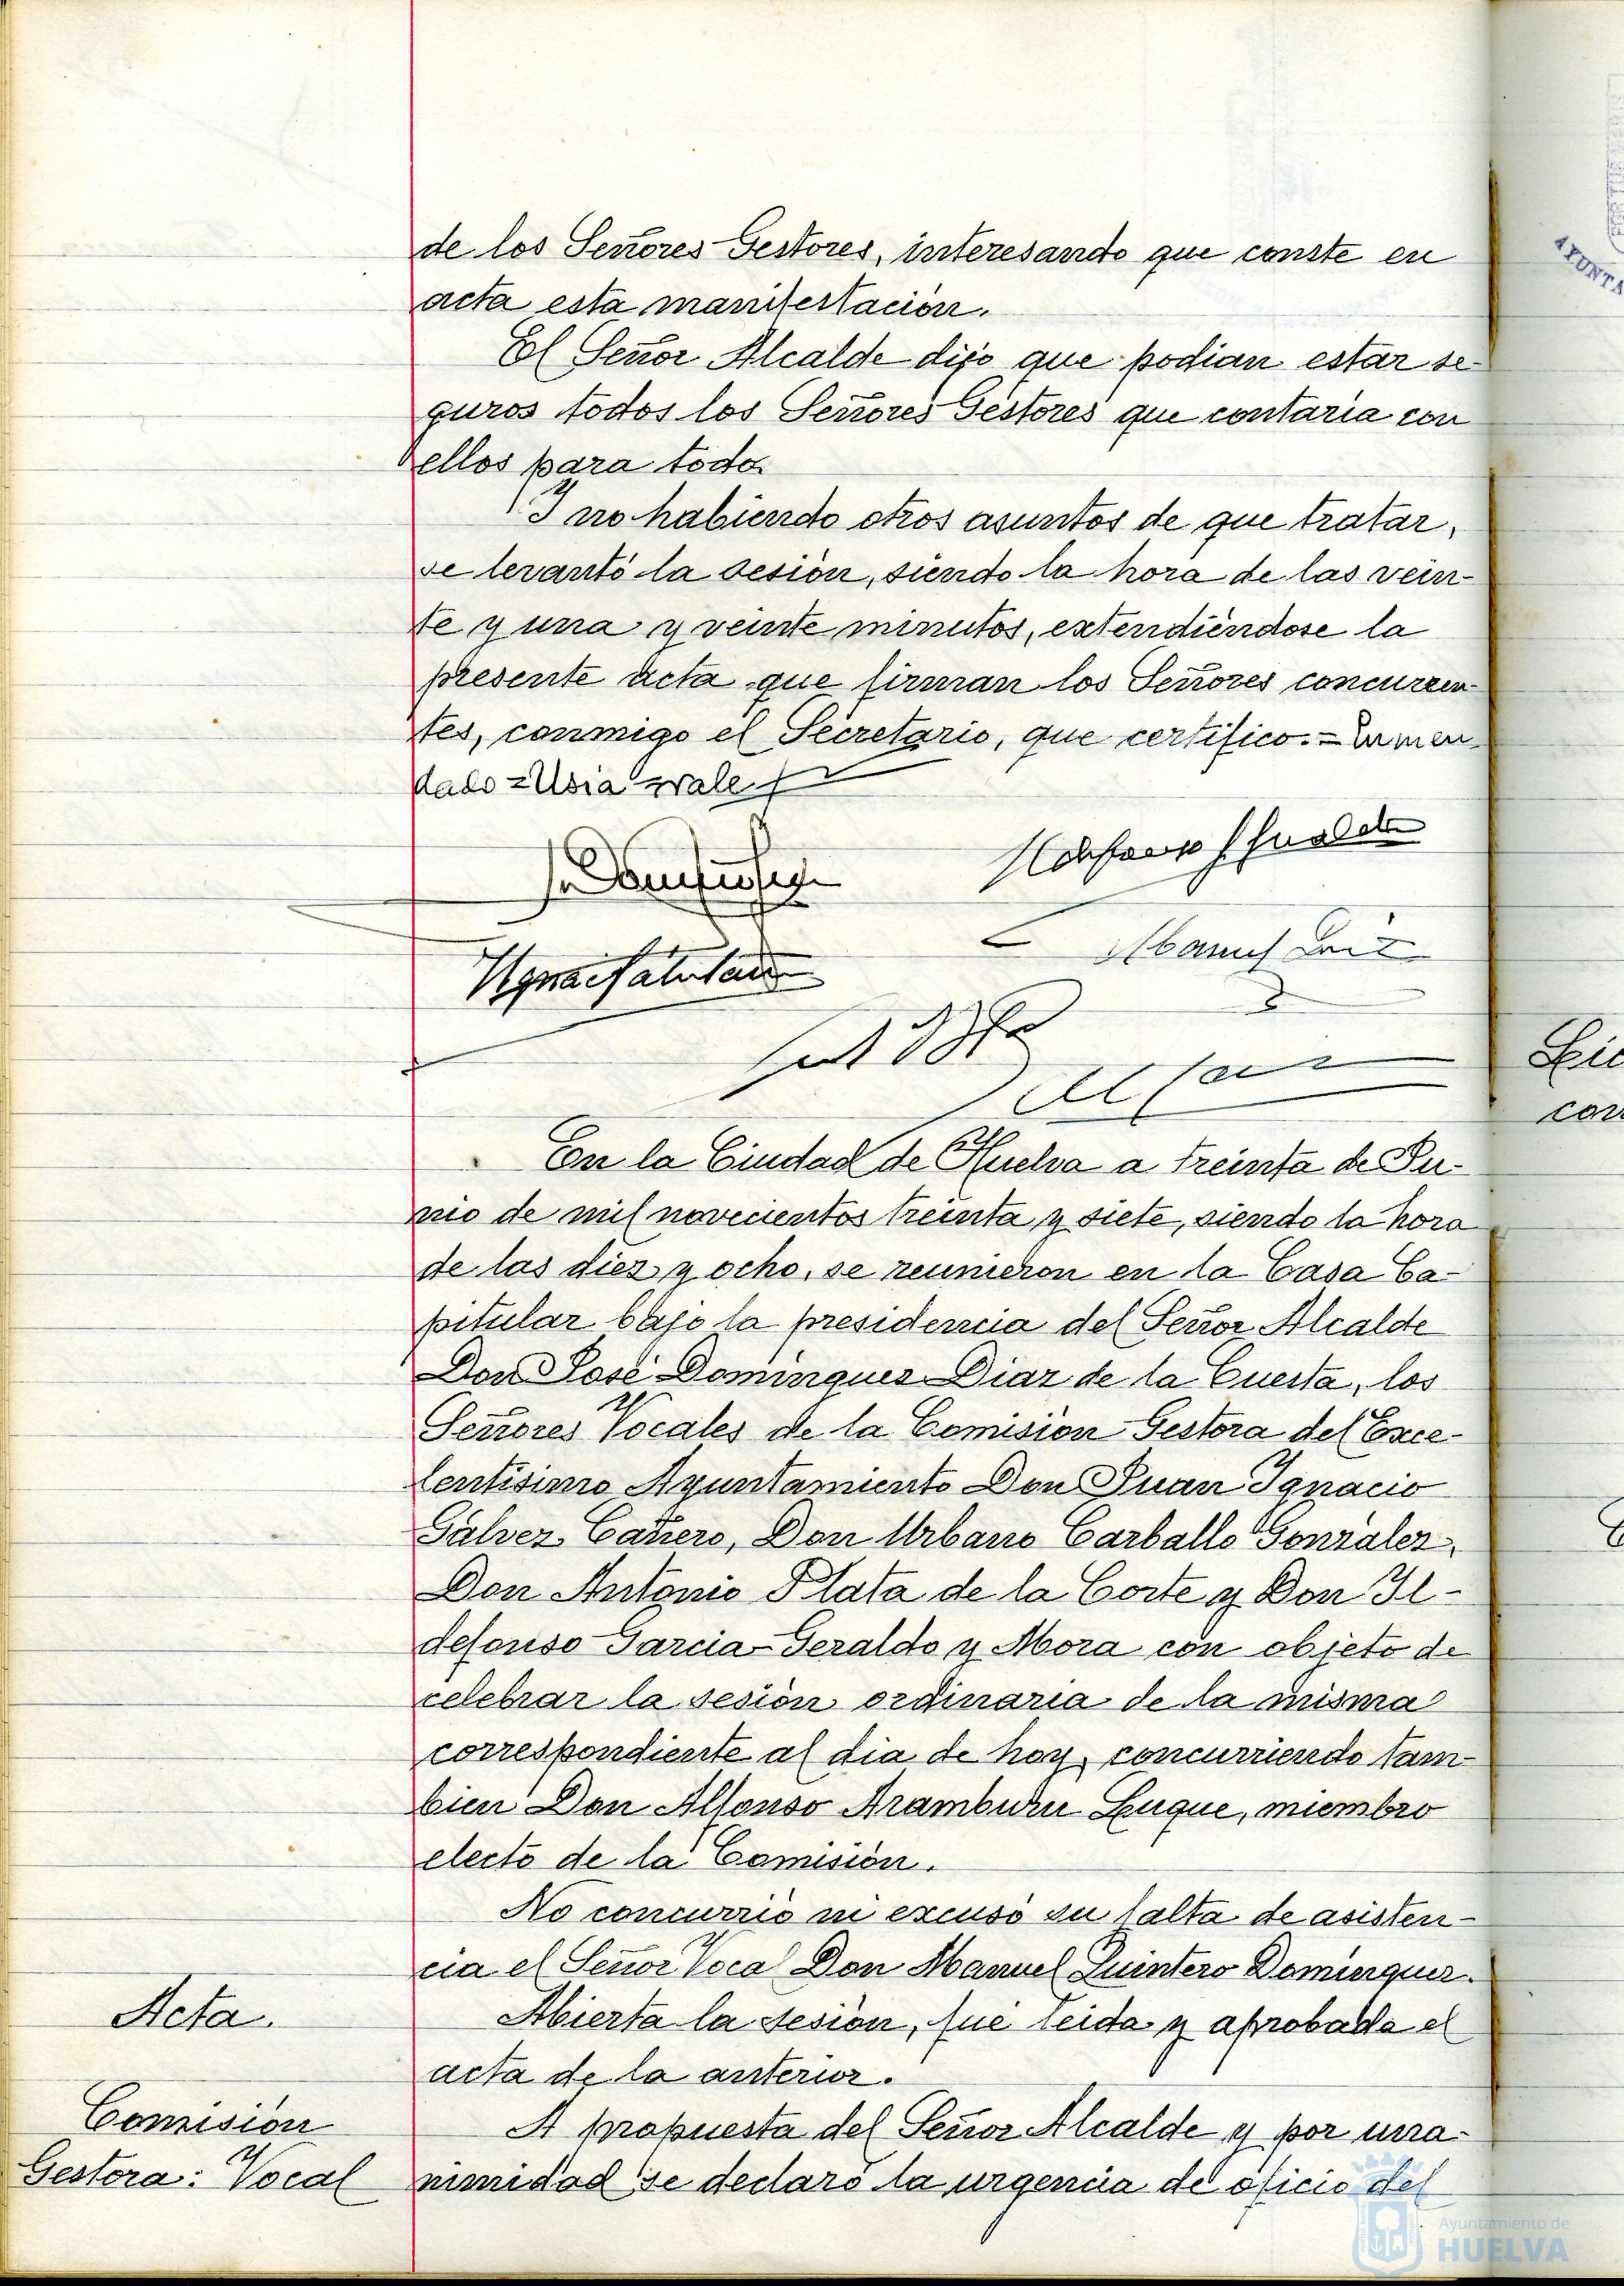 de los Señores Gestores, interesando que conste en
acta esta manifestación.
El Señor Alcalde dijo que podian estar se-
guros todos los Señores Gestores que contaria con
ellos para todo.
Y no habiendo otros asuntos de que tratar,
se levantó la sesión, siendo la hora de las vein-
te y una y veinte minutos, extendiéndose la
presente acta que firman los Señores concurren-
tes, conmigo el Secretario, que certifico.= Enmen-
dado = Usia = vale
En la Ciudad de Huelva a treinta de Ju-
nio de mil novecientos treinta y siete, siendo la hora
de las diez y ocho, se reunieron en la Casa Ca-
pitular bajo la presidencia del Señor Alcalde
Don José Dominguez Diaz de la Cuesta, los
Señores Vocales de la Comisión Gestora del Exce-
lentisimo Ayuntamiento Don Juan Ignacio
Gálvez Cañero, Don Urbano Carballo González,
Don Antonio Plata de la Corte y Don Il-
defonso Garcia-Geraldo y Mora con objeto de
celebrar la sesión ordinaria de la misma
correspondiente al dia de hoy, concurriendo tam-
bien Don Alfonso Aramburu Luque, miembro
electo de la Comisión.
No concurrió ni excusó su falta de asisten-
cia el Señor Vocal Don Manuel Quintero Dominguez.
Acta.
Abierta la sesión, fué leida y aprobada el
acta de la anterior.
Comisión
Gestora: Vocal
A propuesta del Señor Alcalde y por una-
nimidad se declaró la urgencia de oficio del
Ayuntamiento de
HUELVA